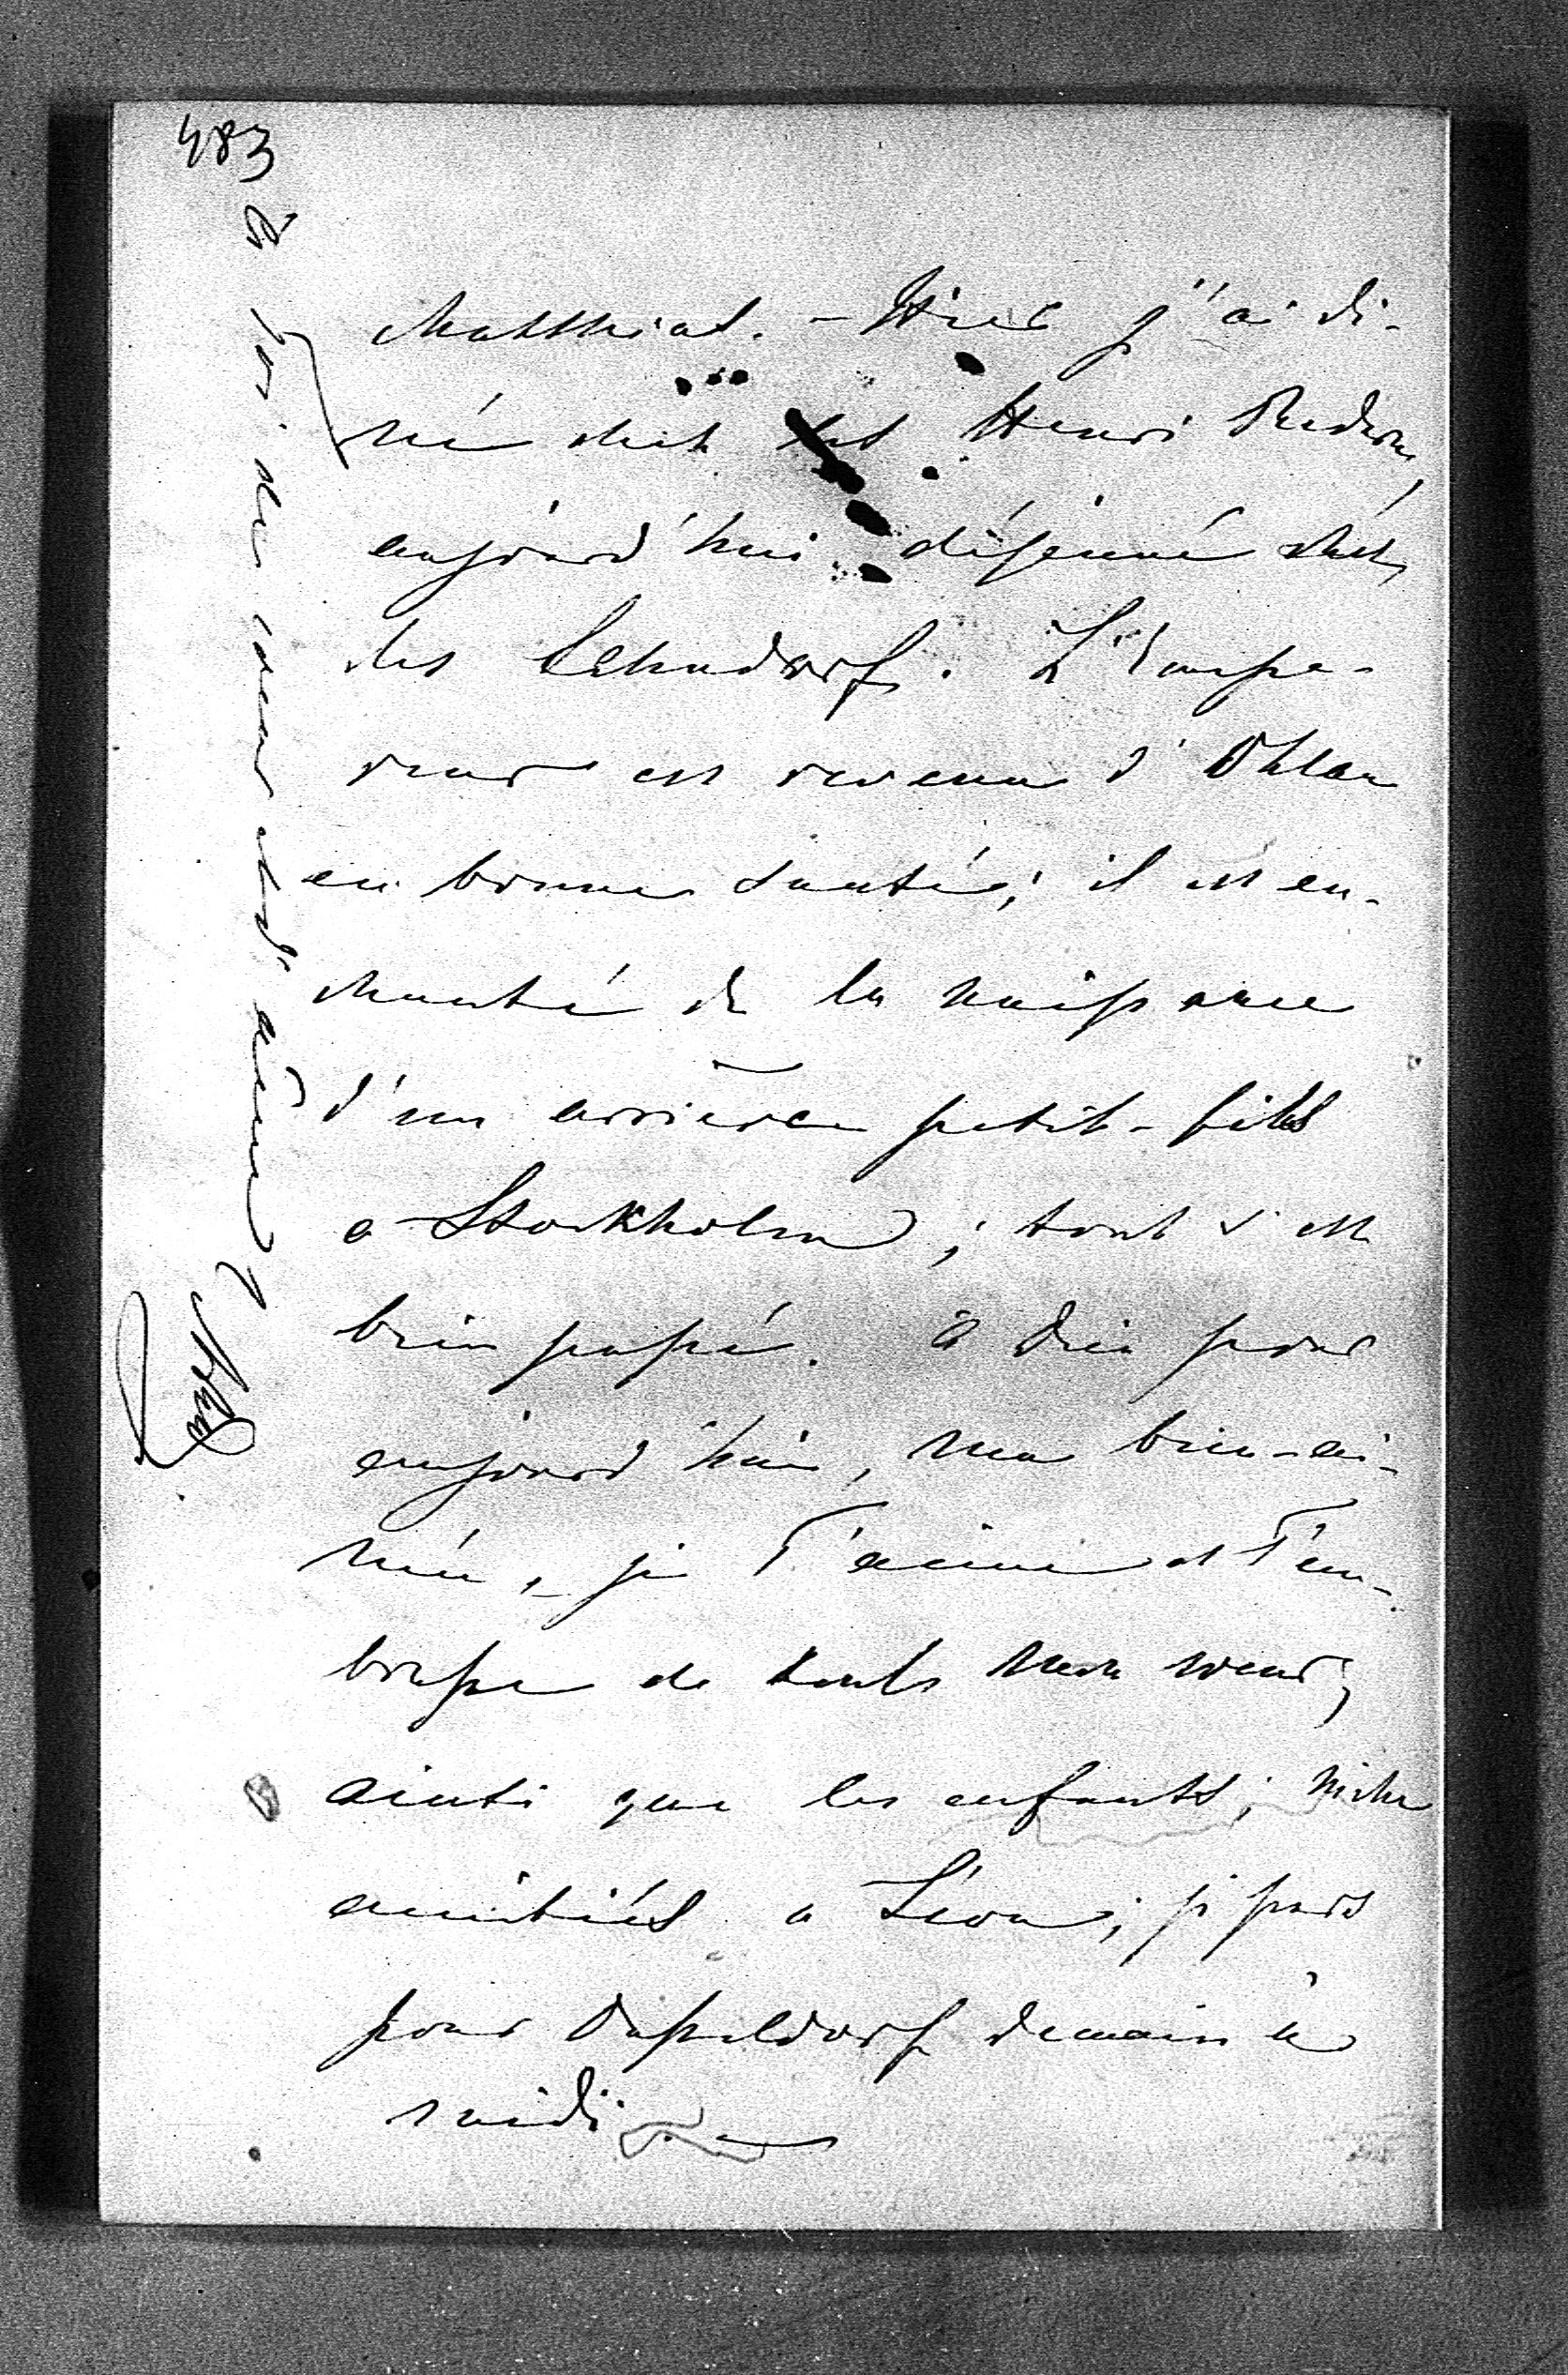 483
Matthias. — Hier j'ai di-
né chez les Henri Redern,
aujourd'hui déjeuné chez
les Lehndorf. L'Empe-
reur est revenu d'Ohlau
en bonne santé; il est en-
chanté de la naissance
d'un arrière petit-fils
a Stockholm; tout s'est
bien passé. à Dieu pour
aujourd'hui, ma bien-ai-
mée, je T'aime et T'em-
brasse de tout mon cœur,
ainsi que les enfants; mille
amitiés a Léon; je pars
pour Dusseldorf demain à
midi. —
à Toi de cœur et d'âme